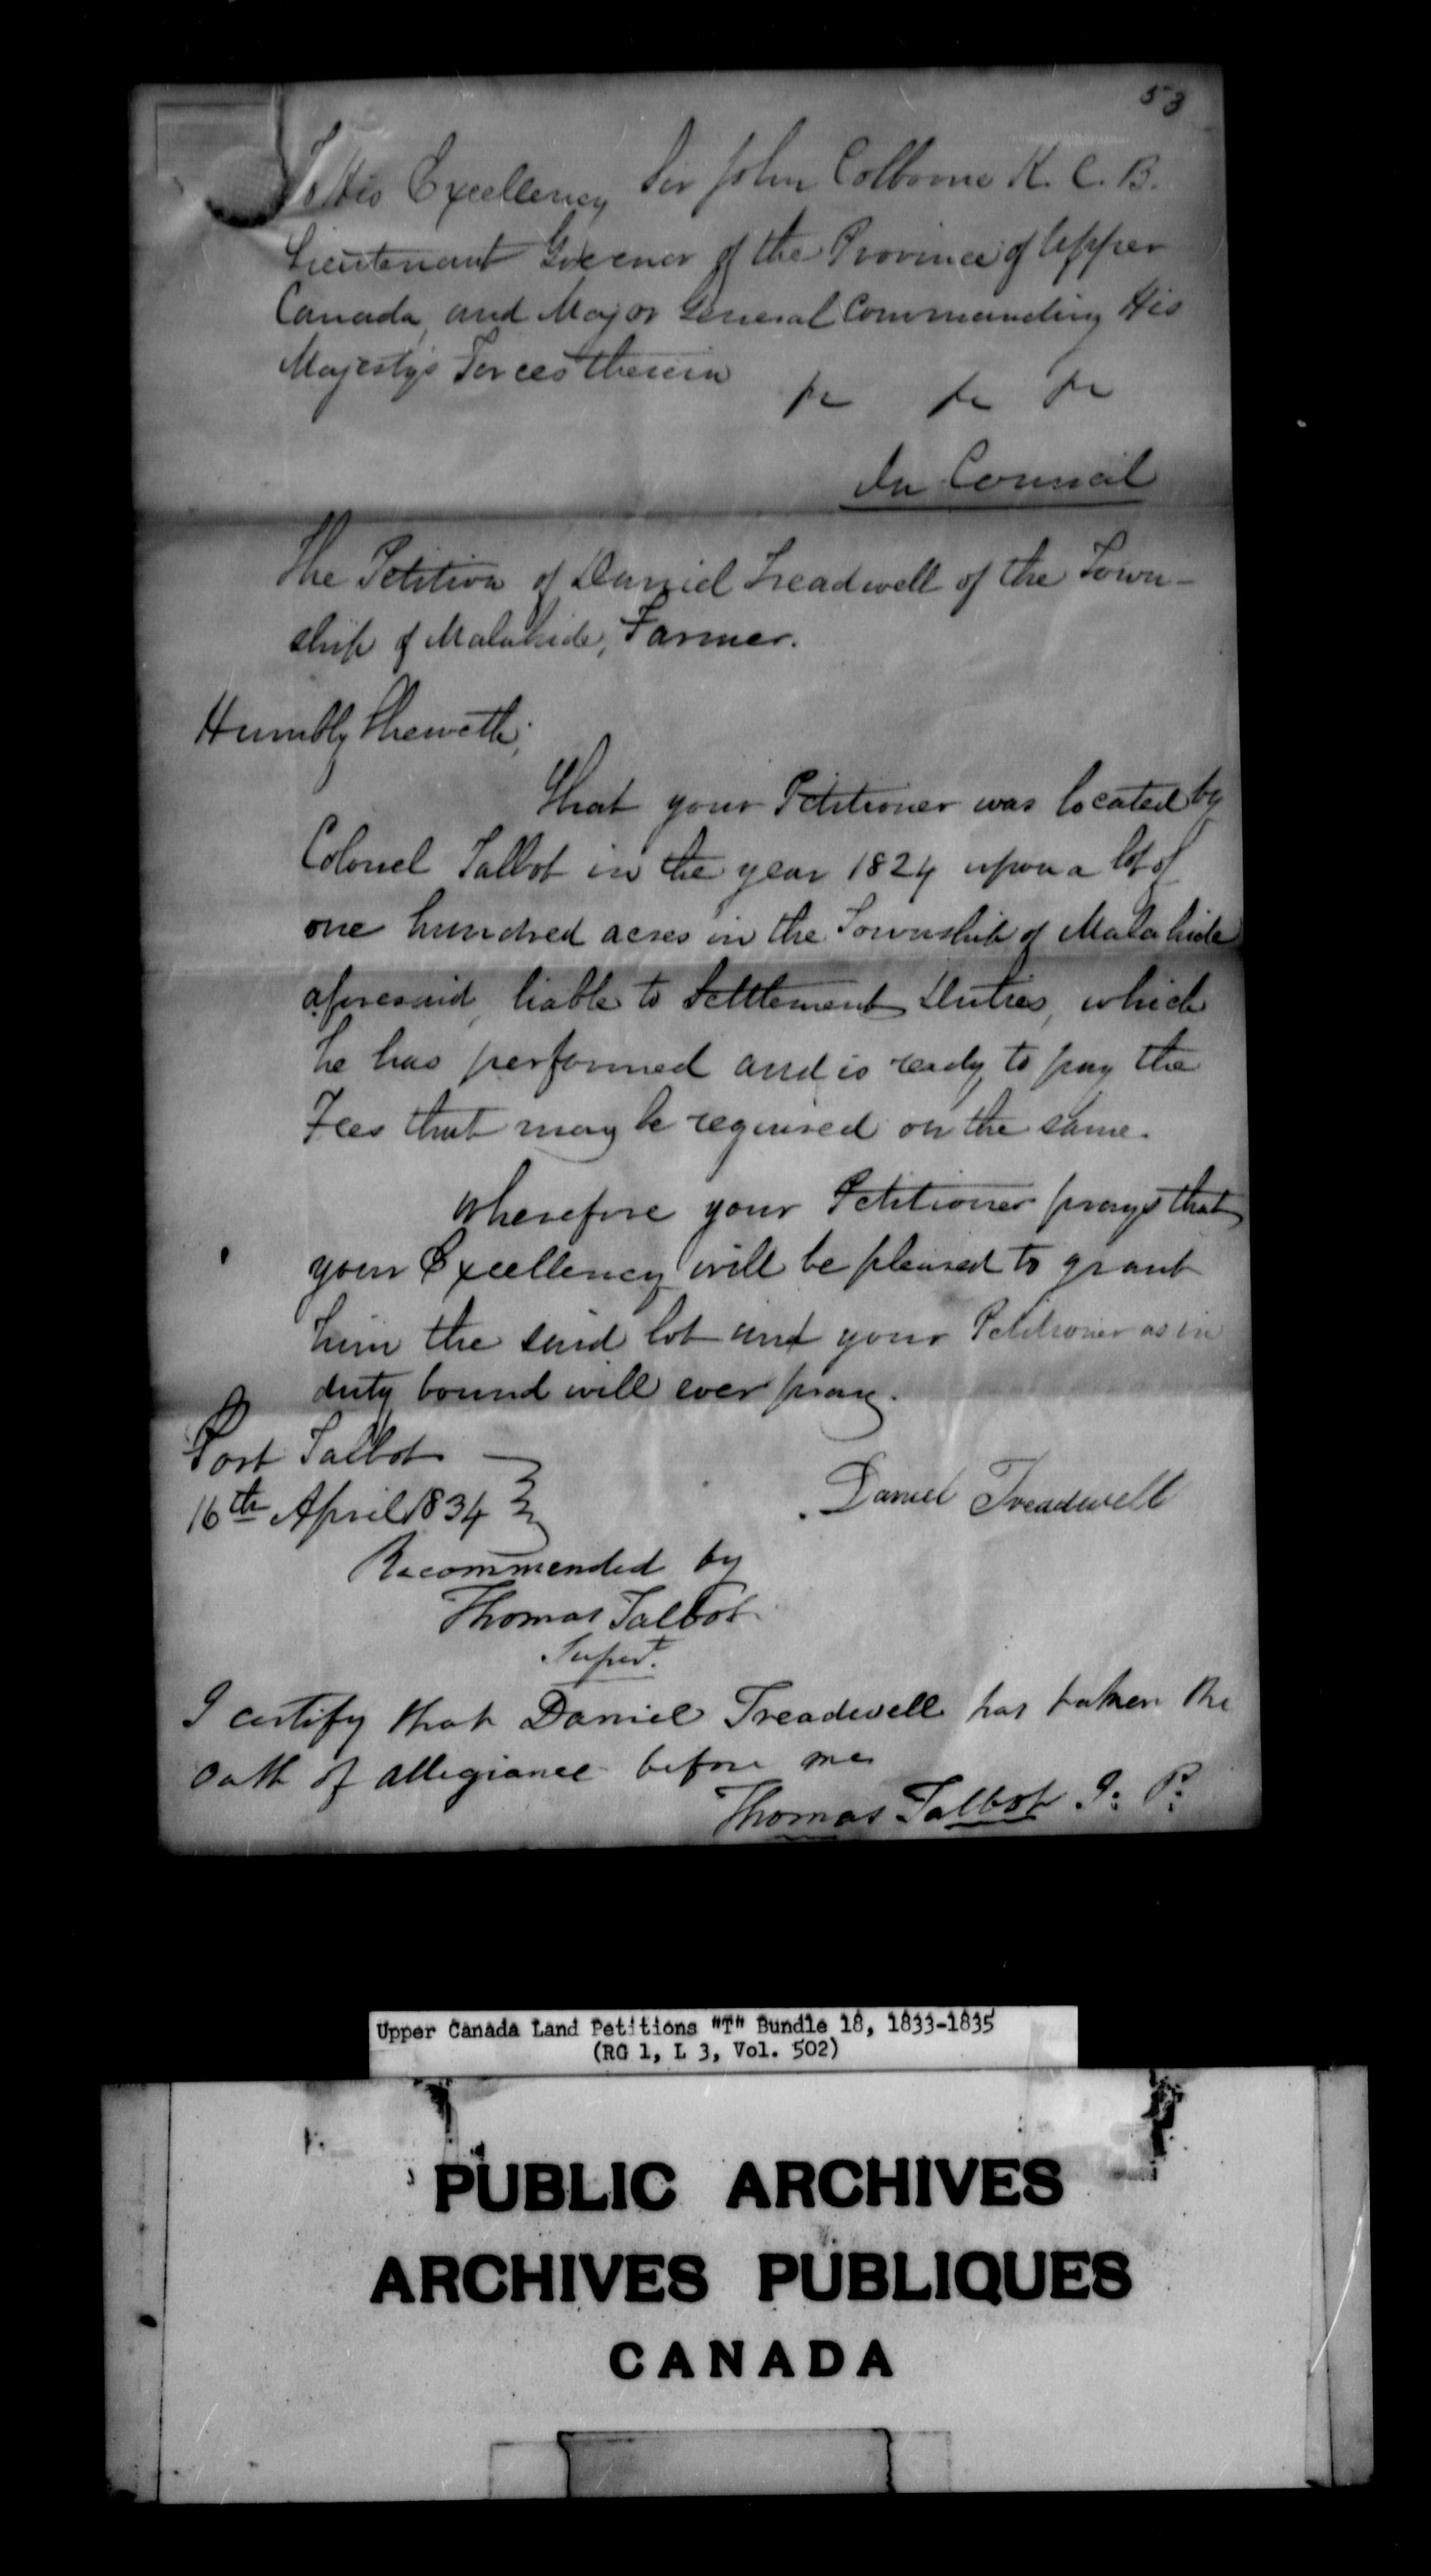 53
To His Excellency Sir John Colborne K. C. B.
Lieutenant Governor of the Province of Upper
Canada, and Major General Commanding His
Majesty's Forces therein &c &c &c
In Council
The Petition of Daniel Treadwell of the Town-
ship of Malahide, Farmer.
Humbly Sheweth;
That your Petitioner was located by
Colonel Talbot in the year 1824 upon a lot of
one hundred acres in the Township of Malahide
aforesaid, liable to Settlement Duties, which
he has performed and is ready to pay the
Fees that may be required on the same.
Wherefore your Petitioner prays that
your Excellency will be pleased to grant
him the said lot and your Petitioner as in
duty bound will ever pray.
Port Talbot
16th April 1834
Daniel Treadwell
Recommended by
Thomas Talbot
Supert.
I certify that Daniel Treadwell has taken the
Oath of allegiance before me
Thomas Talbot J: P:
Upper Canada Land Petitions "T" Bundle 18, 1833-1835
(RG 1, L 3, Vol. 502)
PUBLIC ARCHIVES
ARCHIVES PUBLIQUES
CANADA